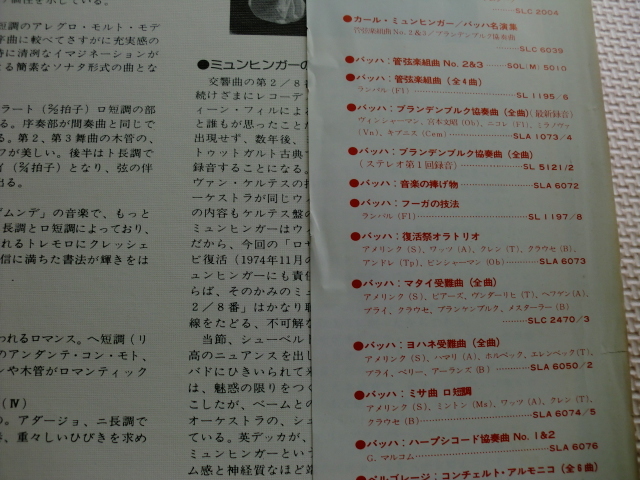 短調のアレグロ・モルト・モデ
序曲に較べてさすがに充実感の
時に清冽なイマジネーションが
よる簡素なソナタ形式の曲とな
ロ短調の部
る。序奏部が間奏曲と同じで
る。第2、第3舞曲の木管の、
フが美しい。後半はト長調で
となり、弦の伴
出る。
の音楽で、もっと
長調とロ短調によっており、
れるトレモロにクレッシェ
信に満ちた書法が輝きをは
われるロマンス。ヘ短調(リ
のアンダンテ・コン・モト、
ンや木管がロマンティック
(Ⅳ)
の。アダージョ、ニ長調で
重々しいひびきを求め
●ミュンヒンガーの
交響曲の第2/8番
続けざまにレコーデ
ィーン・フィルによ
と誰もが思ったことが
出現せず、数年後、
トゥットガルト古典
録音することになる。
ヴァン・ケルテスの
ーケストラが同じウ
の内容もケルテス盤の
ミュンヒンガーはウ
だから、今回の「ロ
ビ復活(1974年11月の
ュンヒンガーにも責任
らば、そのかみのミュ
2/8番」はかなり
線をたどる、不可解な
当節、シューベル
高のニュアンスを出し
バドにひきいられて
は、魅惑の限りをつく
こしたが、ベームとの
オーケストラの、シュ
ている。英デッカが、
ミュンヒンガーという
ム感と神経質なほど
SLC 2004
●カール・ミュンヒンガー/バッハ名演集
管弦楽組曲 No.2&3/ブランデンブルク協奏曲
SLC 6039
●バッハ:管弦楽組曲 No.2&3 SOL:M:5010
●バッハ:管弦楽組曲(全4曲)
ランパル(Fl) SL 1195/6
●バッハ:ブランデンブルク協奏曲(全曲)(最新録音)
ヴィンシャーマン、宮本文昭(Ob)、ニコレ(Fl)、ミラノヴァ
(Vn)、キプニス(Cem) SLA 1073/4
●バッハ:ブランデンブルク協奏曲(全曲)
(ステレオ第1回録音) SL 5121/2
●バッハ:音楽の捧げ物 SLA 6072
●バッハ:フーガの技法
ランパル(Fl) SL 1197/8
●バッハ:復活祭オラトリオ
アメリンク(S)、ワッツ(A)、クレン(T)、クラウセ(B)、
アンドレ(Tp)、ピンシャーマン(Ob) SLA 6073
●バッハ:マタイ受難曲(全曲)
アメリンク(S)、ピアーズ、ヴンダーリヒ(T)、ヘフゲン(A)、
プライ、クラウセ、ブランケンブルク、メスターラー(B)
SLC 2470/3
●バッハ:ヨハネ受難曲(全曲)
アメリンク(S)、ハマリ(A)、ホルベック、エレンベック(T)、
プライ、ベリー、アーランズ(B) SLA 6050/2
●バッハ:ミサ曲 ロ短調
アメリンク(S)、ミントン(Ms)、ワッツ(A)、クレン(T)、
クラウセ(B) SLA 6074/5
●バッハ:ハープシコード協奏曲 No.1&2
G.マルコム SLA 6076
●ペルゴレージ:コンチェルト・アルモニコ(全6曲)